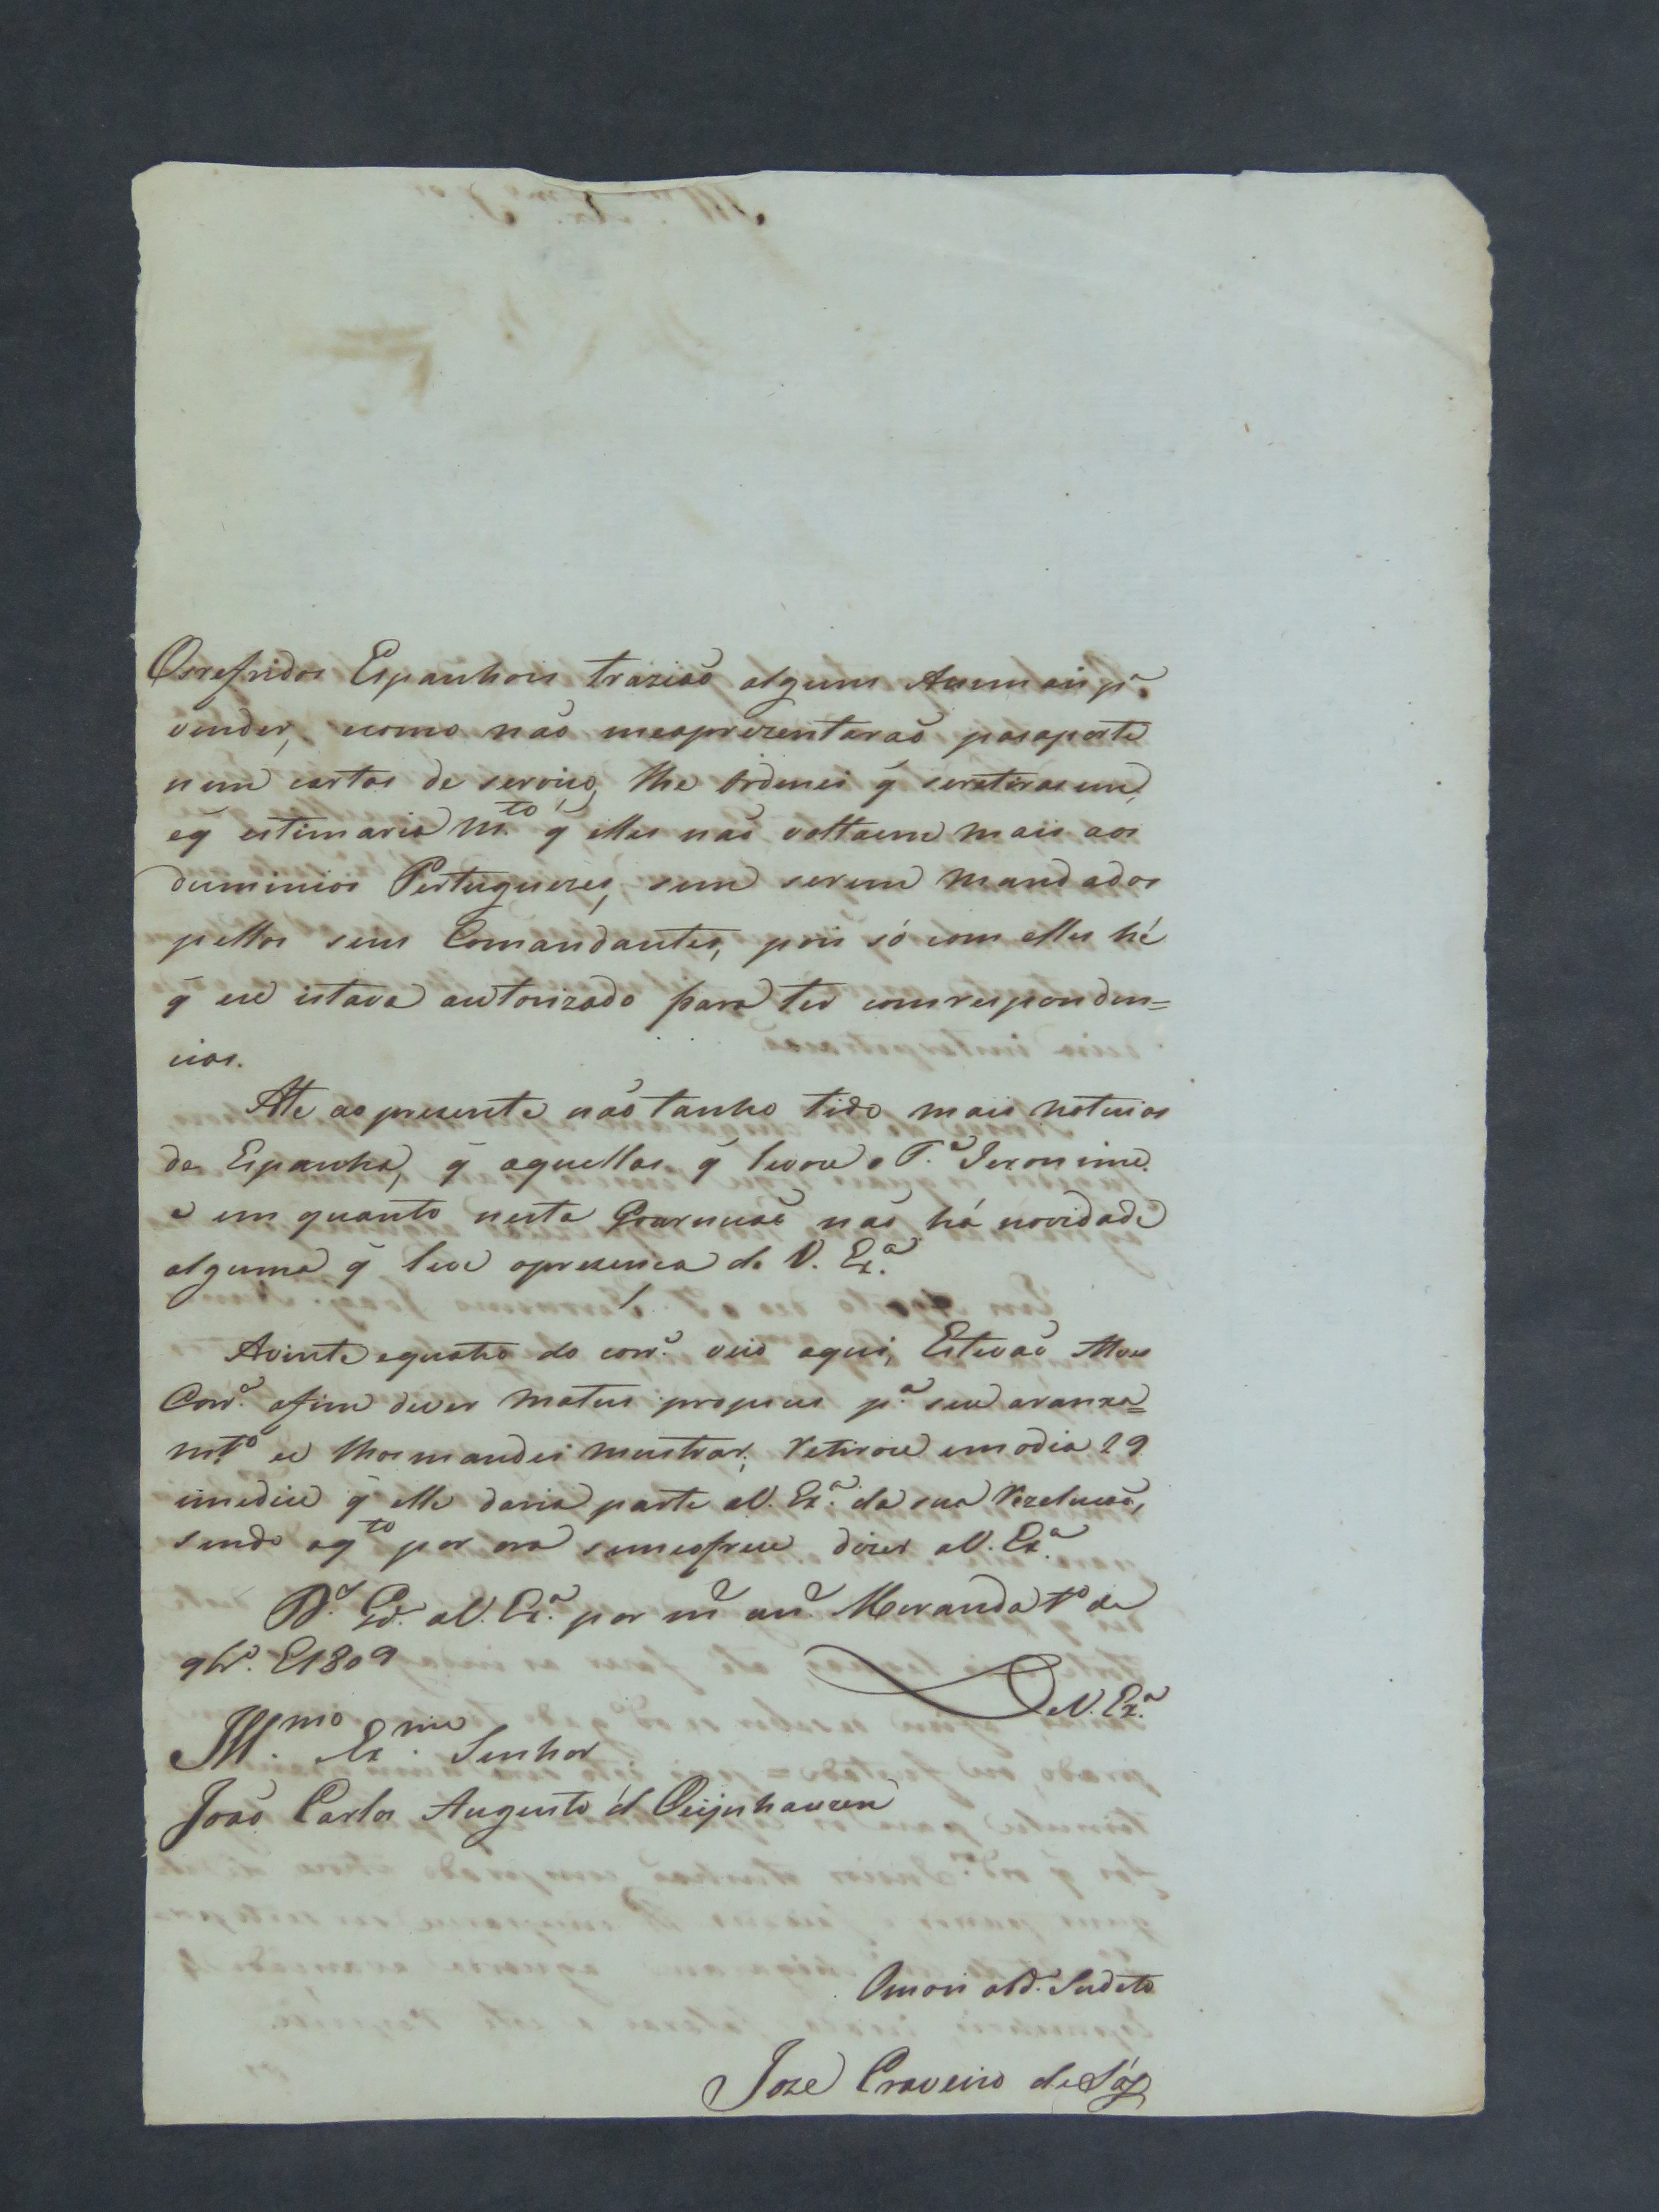 Osrefridos Espanhois trazião alguns Anim ais pª
vender, ecomo não meaprezentarão pasaporte
nem cartas de serviço, lhe ordenei q̃ seretirasem,
eq̃ estimaria m.to q̃ elles não voltasem mais aos
duminios Portuguezes, sem serem mandados
pellos seus Comandantes, pois só com elles hé
q̃ eu istava autorizado para ter comresponden=
cias.
Ate ao prezente não tanho tido mais noticias
da Espanha, q̃ aquellas q̃ levou o T.e Jeronimo
e em quanto nesta Goarnição não há novidade
alguma q̃ leve apresença de V. Ex.ª
Avinte equatro do corr.e veio aqui, Estevão Alves
Corr.ª afim dever matos propios p.ª seu aranxa=
mt.º eu lhos mandei mustrar, retirou em odia 29
imedice q̃ elle daria parte aV. Ex.ª da sua rezelução,
sendo oq.to por ora semeofrese dizer aV. Ex.ª
D.s G.de aV. Ex.ª por m.s an.s Miranda 1º de
9br.º E1809
DeV. Ex.ª
Ill.mo Ex.mo Senhor
João Carlos Augusto d' Oeijnhauzen
Omais obd. Sudito
Joze Craveiro de Sá